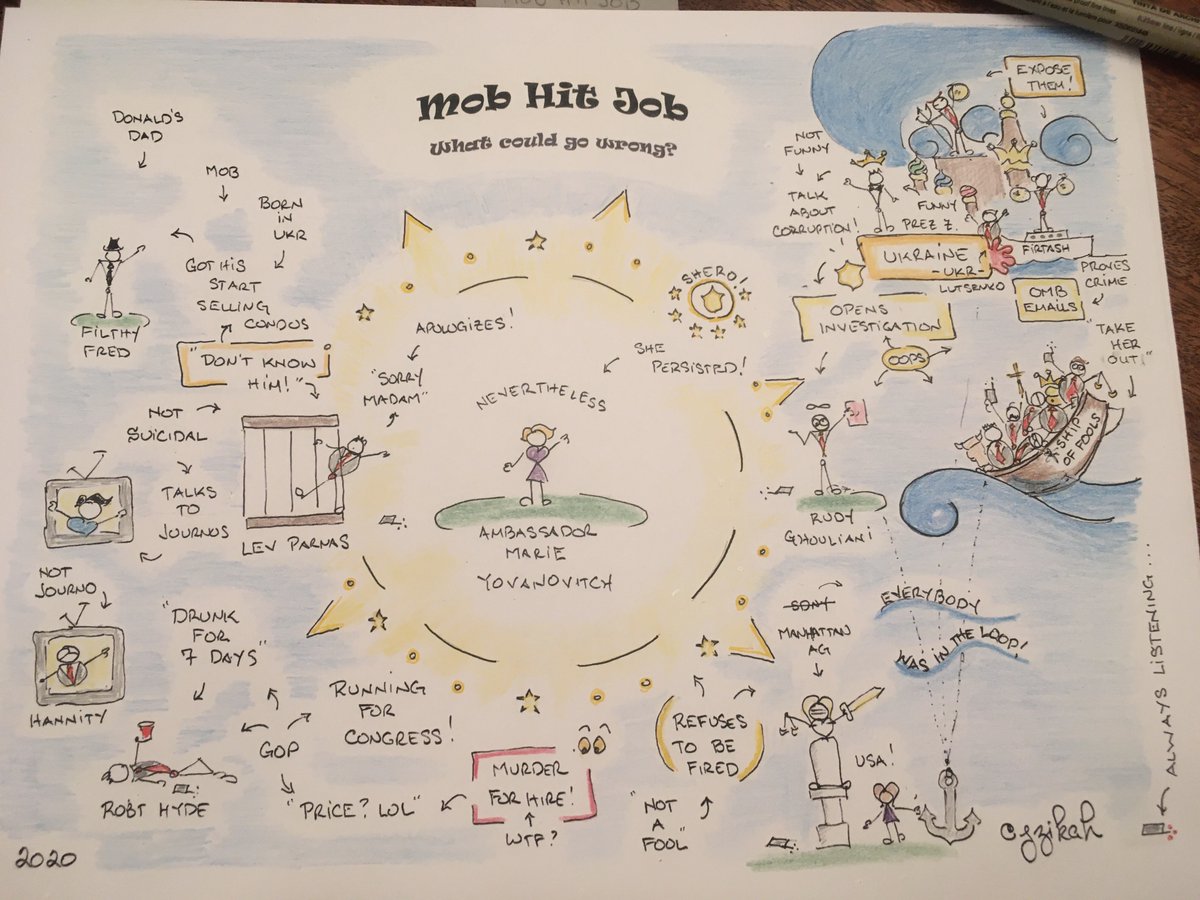 MOB HIT JOB
Mob Hit Job
What could go wrong?
DONALD'S
DAD
MOB
BORN
IN
UKR
GOT HIS
START
SELLING
CONDOS
FILTHY
FRED
"DON'T KNOW
HIM!"
NOT
SUICIDAL
TALKS
TO
JOURNOS
LEV PARNAS
NOT
JOURNO
HANNITY
"DRUNK
FOR
7 DAYS"
ROBT HYDE
GOP
RUNNING
FOR
CONGRESS!
"PRICE? LOL"
MURDER
FOR HIRE!
WTF?
APOLOGIZES!
"SORRY
MADAM"
NEVERTHELESS
SHE
PERSISTED!
SHERO!
AMBASSADOR
MARIE
YOVANOVITCH
REFUSES
TO BE
FIRED
"NOT
A
FOOL"
NOT
FUNNY
TALK
ABOUT
CORRUPTION!
EXPOSE
THEM!
FUNNY
PREZ Z.
UKRAINE
-UKR-
LUTSENKO
FIRTASH
PROVES
CRIME
OMB
EMAILS
OPENS
INVESTIGATION
OOPS
"TAKE
HER
OUT!"
SHIP
OF FOOLS
RUDY
GHOULIANI
EVERYBODY
WAS IN THE LOOP!
SDNY
MANHATTAN
AG
USA!
ALWAYS LISTENING...
cyzikah
2020